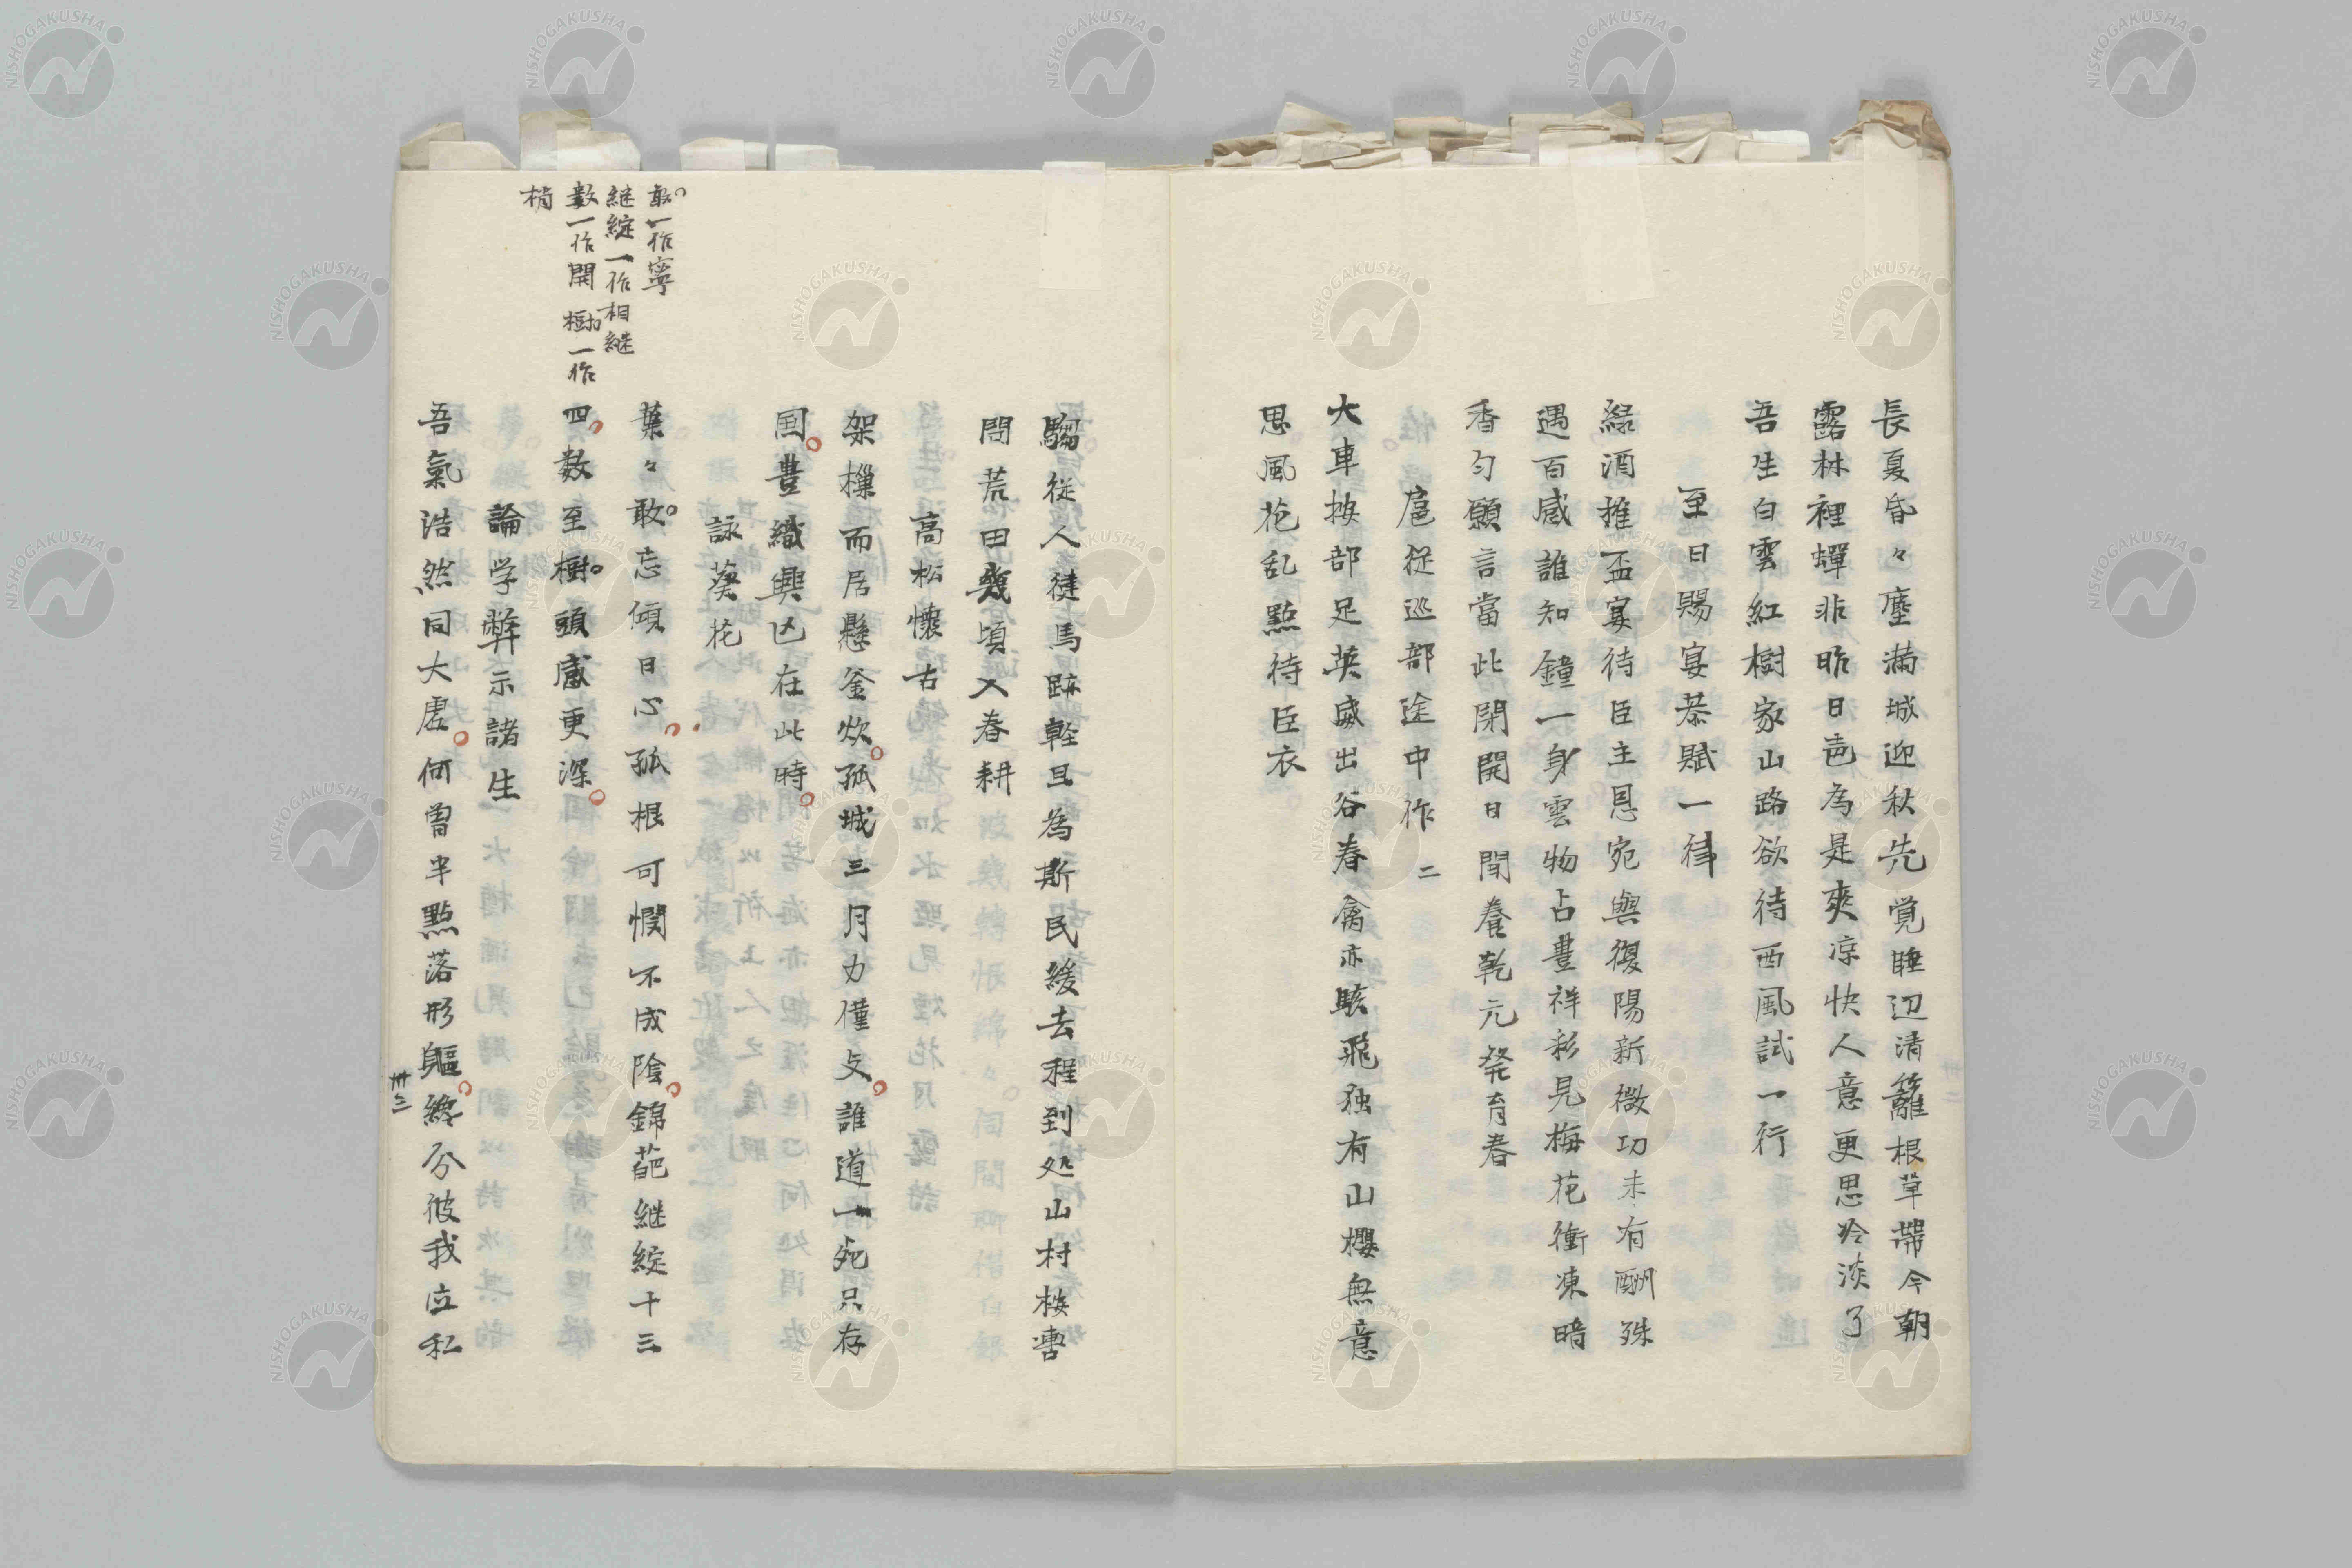 長夏昏々塵満城迎秋先覚睡辺清籬根草帯今朝
露林裡蟬非昨日声為是爽凉快人意更思冷淡了
吾生白雲紅樹家山路欲待西風試一行
至日賜宴恭賦一律
緑酒推盃宴待臣主恩宛與復陽新微功未有酬殊
遇百感誰知鐘一身雲物占豊祥彩見梅花衝凍暗
香匀願言當此閉開日間養乾元発育春
扈従巡部途中作 二
大車按部足英威出谷春禽亦駭飛独有山櫻無意
思風花乱點待臣衣
騶従人徒馬跡軽且為斯民緩去程到処山村桉轡
問荒田幾頃入春耕
高松懐古
架樔而居懸釜炊孤城三月力僅支誰道一死只存
国豊織興凶在此時
詠葵花
葉々敢忘傾日心孤根可憫不成陰錦葩継綻十三
四数至樹頭感更深
敢一作寧
継綻一作相継
数一作開 樹一作
梢
論学弊示諸生
吾氣浩然同大虚何曽半點落形軀総分彼我立私
卅三
NISHOGAKUSHA